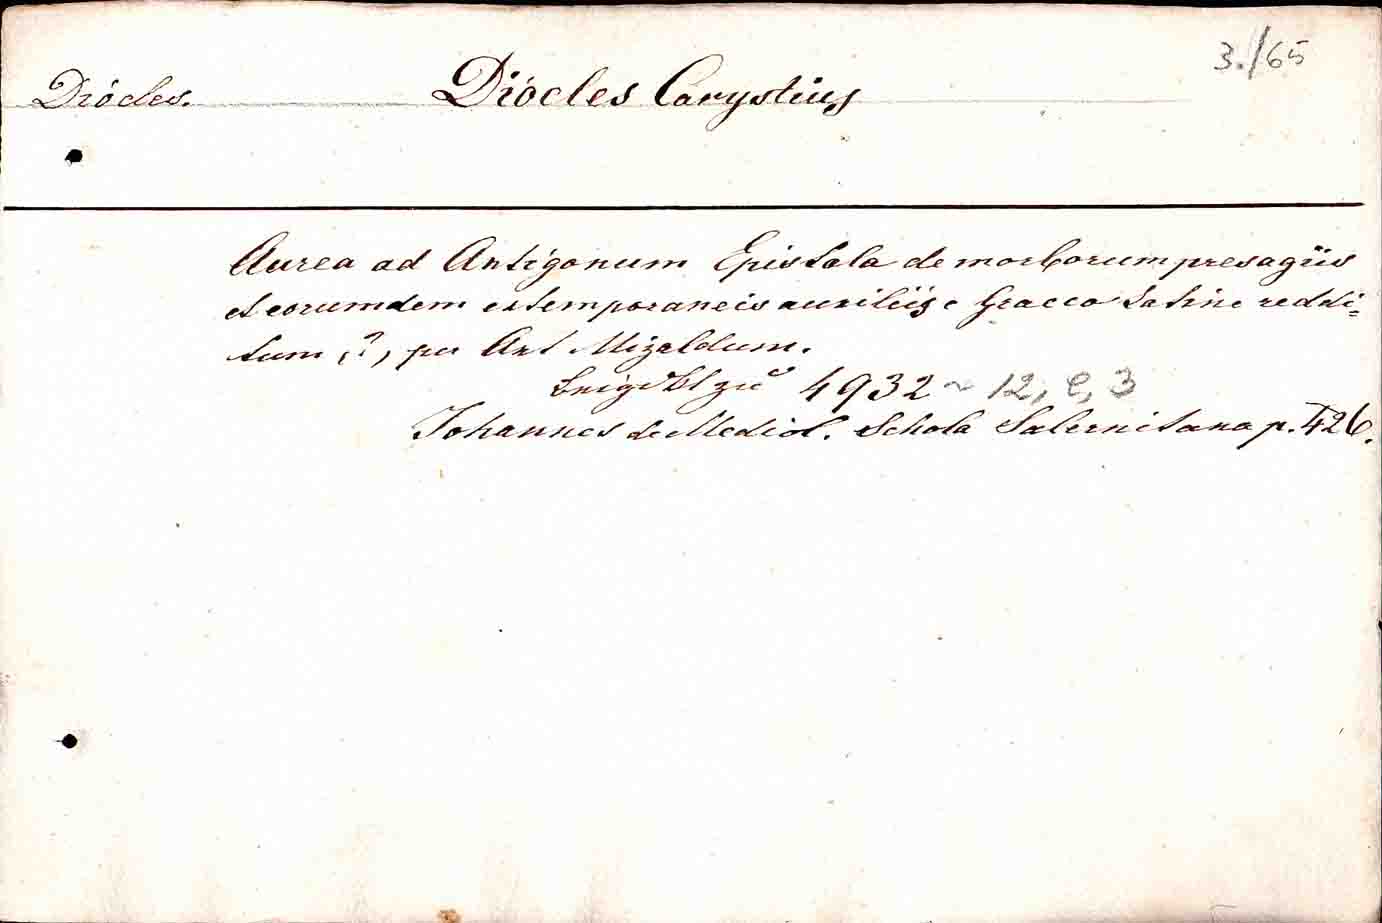 3./65
Diócles. Diócles Carystius
Aurea ad Antigonum Epistola de morborum presagiis
et eorumdem extemporaneis auxiliis e Graeco latine reddi=
tum (?), per Ant Mizaldum.
4932 ~ 12, e, 3
Johannes de Mediol. Schola Salernitana p. 426.